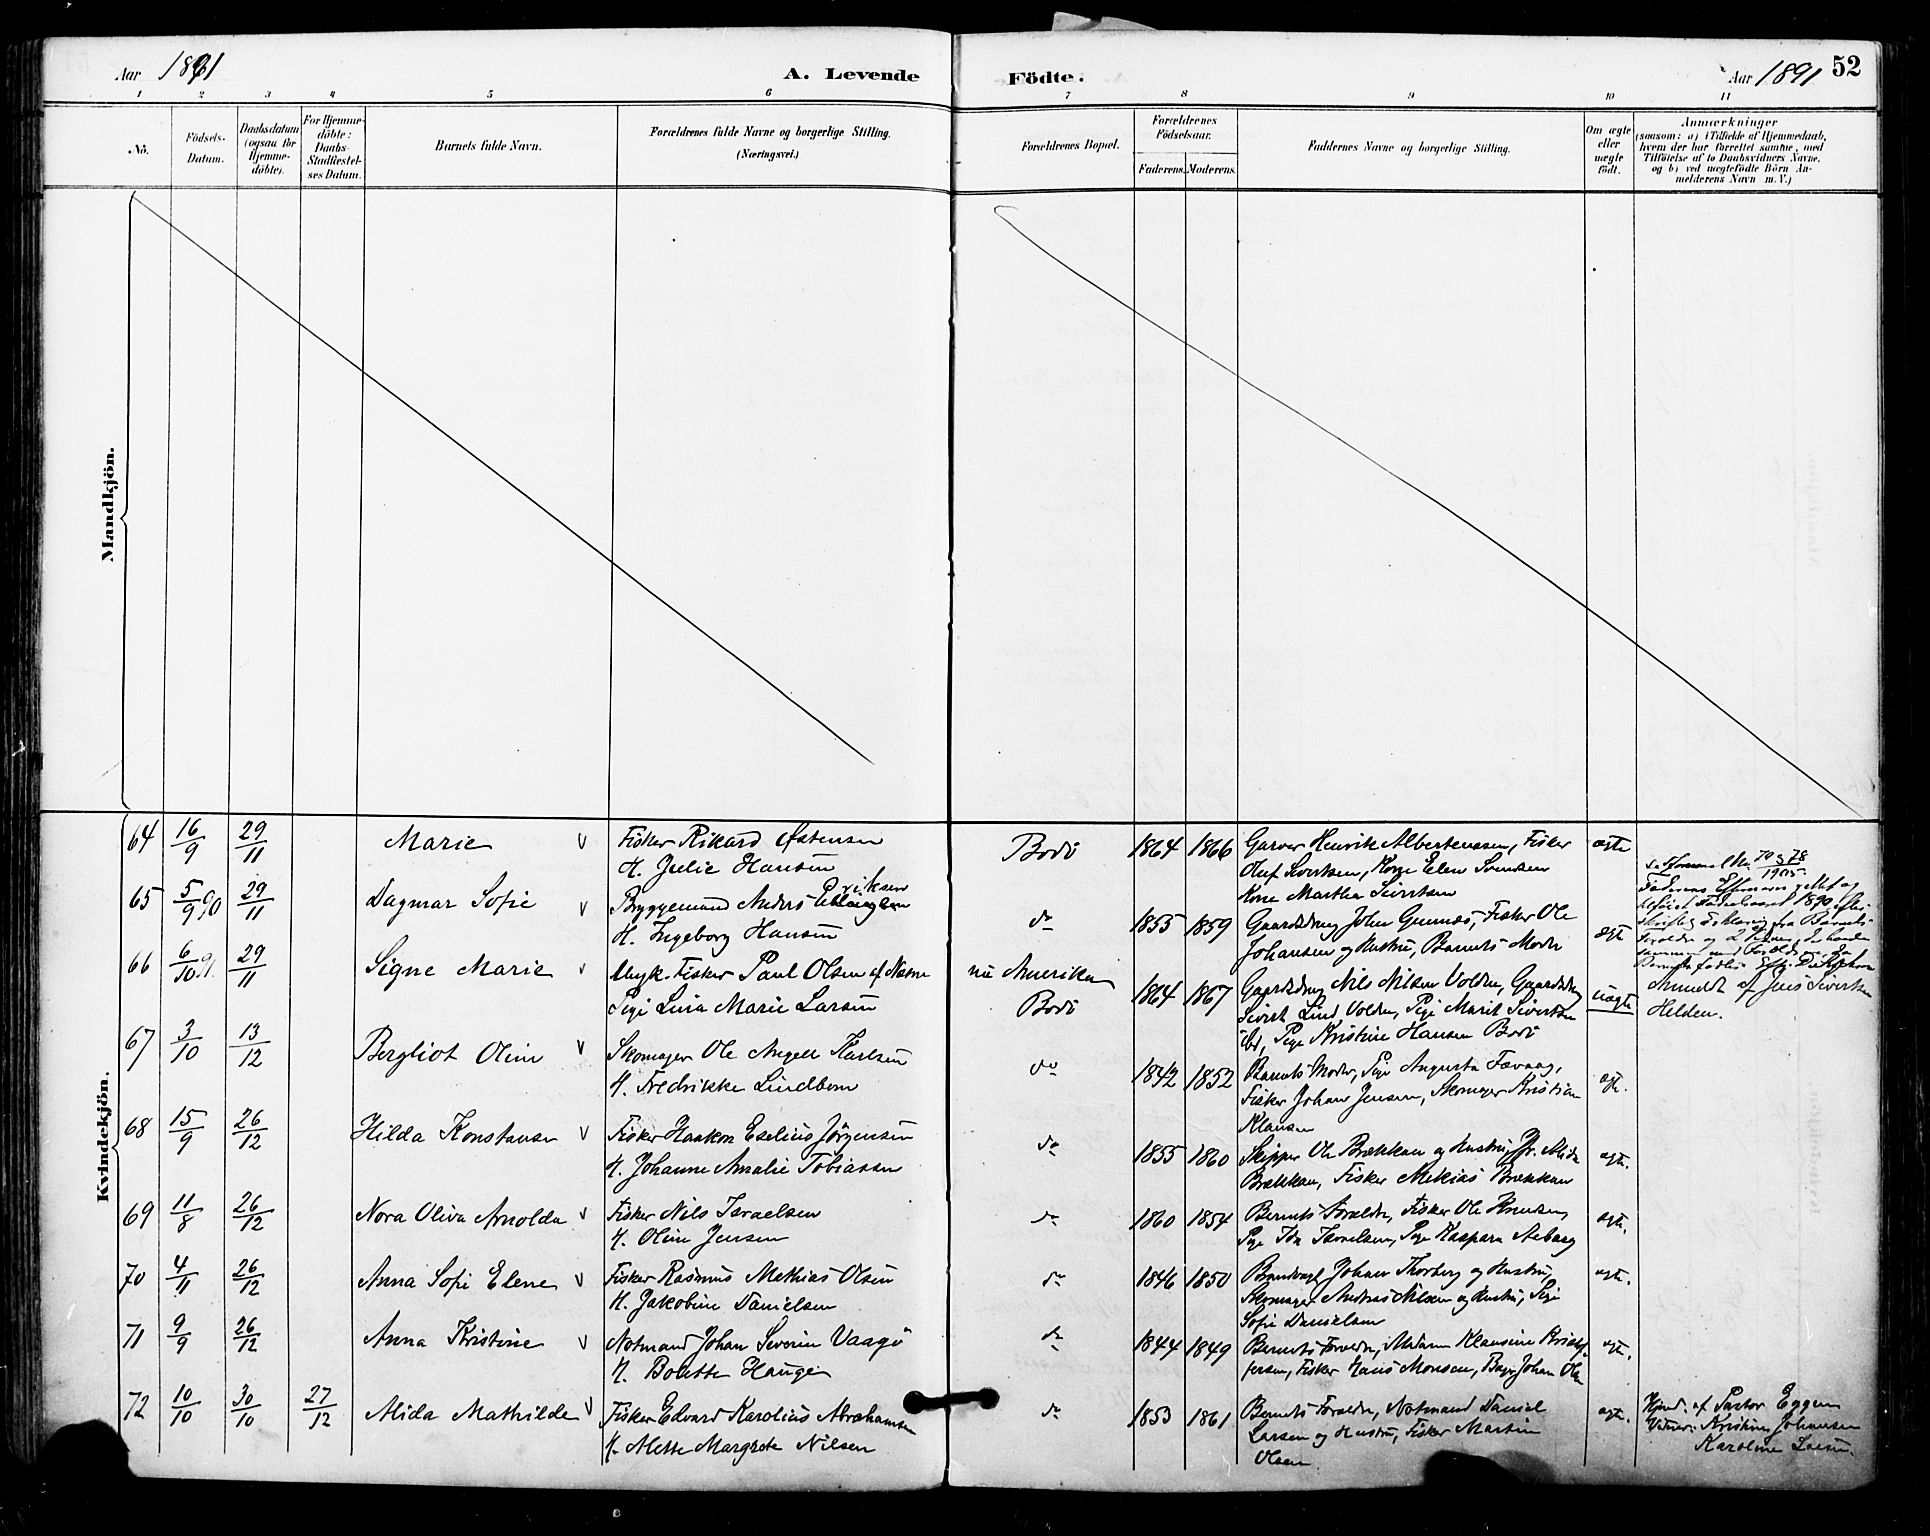 Aar 1891
A. Levende
Födte.
Aar 1891
52
1
2
3
4
5
6
7
8
9
10
11
No.
Födsels-
Datum.
Daabsdatum
(ogsaa for
Hjemme-
döbte).
For Hjemme-
döbte:
Daabs-
Stadfæstel-
ses Datum.
Barnets fulde Navn.
Forældrenes fulde Navne og borgerlige Stilling.
(Næringsvei.)
Forældrenes Bopæl.
Forældrenes
Födselsaar.
Faderens.
Moderens.
Faddernes Navne og borgerlige Stilling.
Om ægte
eller
uægte
födt.
Anmærkninger
(saasom: a) i Tilfælde af Hjemmedaab,
hvem der har forrettet samme, med
Tilföielse af to Daabsvidners Navne.
og b) ved uægtefödte Börn An-
melderens Navn m. V.)
Mandkjön.
Kvindekjön.
64 16/9 29/11 Marie
Fisker Rikard Østensen
H. Julie Hansen
Bodö 1864 1866
Garver Henrik Albertenssen, Fisker
Oluf Sivertsen, Kone Elen Svendsen
Kone Martha Sivertsen
ægte
65 5/9 90 29/11 Dagmar Sofie
Bryggemand Anders
H. Ingeborg Hansen
do 1855 1859
Gaardbrug John Fisker Ole
Johansen og Hustru, Barnets Moder
ægt
66 6/10 91. 29/11 Signe Marie
Fisker Paul Olsen af
Pige Lina Marie Larsen
nu Amerika
Bodö 1864 1867
Nils Nilsen Volden,
Sivert Lind Volden, Pige Marit Sivertsen
ibd, Pige Kristine Hansen Bodö
uægte
Anmeldt af Jens Sivertsen
Helden.
67 3/10 13/12 Bergliot Oline
Skomager Ole Angell Karlsen
H. Fredrikke Lindbom
do 1842 1852
Barnets Moder, Pige Augusta
Fisker Johan Jensen, Skomager Kristian
Klausen
ægt.
68 15/9 26/12 Hilda Konstanse
Fisker Haakon Eselius Jörgensen
H. Johanne Amalie Tobiassen
do 1855 1860
Skipper Ole Brækkan og Hustru, Alida
Brækkan, Fisker Mekias Brækkan
ægt.
69 11/8 26/12 Nora Oliva Arnolda
Fisker Nils Israelsen
H. Oline Jensen
do 1860 1854
Barnets Forældre, Fisker Ole Knudsen,
Pige Ida Israelsen, Pige Kaspara
ægt.
70 4/11 26/12 Anna Sofie Elene
Fisker Rasmus Mekias Olsen
H. Jakobine Danielsen
do 1846 1850
Johan Thorberg og Hustru,
Skomager Andreas Nilsen og Hustru, Pige
Sofie Danielsen
ægt.
71 9/9 26/12 Anna Kristine
Notmand Johan Severin Vaagö
H. Bolette Hauge
do 1844 1849
Barnets Forældre, Madam Klausine
Fisker Hans Monsen, Johan
ægt.
72 10/10 30/10 27/12 Alida Mathilde
Fisker Edvard Karolius Abrahamsen
H. Mette Margrete Nilsen
do 1853 1861
Barnets Forældre, Notmand Daniel
Larsen og Hustru, Fisker Martin
Olsen
ægt.
Hjmd. af Pastor Eggen
Vidner: Kristine Johansen
Karoline